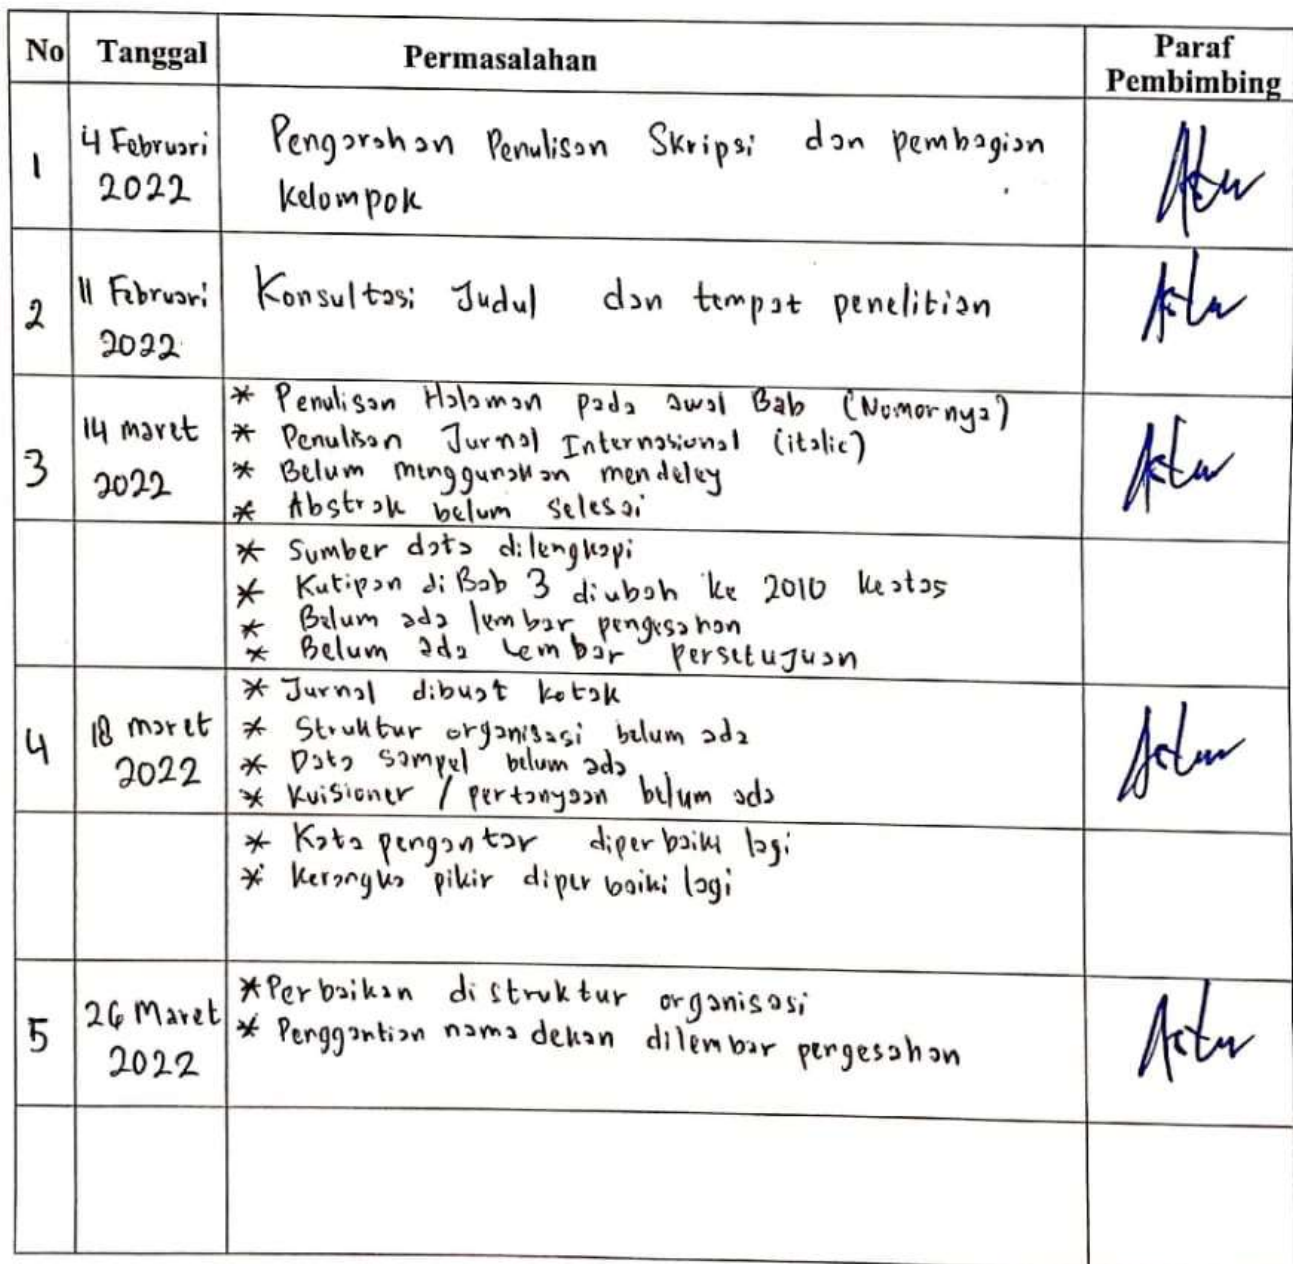 No Tanggal Permasalahan Paraf Pembimbing
1 4 Februari 2022 Pengarahan Penulisan Skripsi dan pembagian
kelompok
2 11 Februari 2022 Konsultasi Judul dan tempat penelitian
3 14 maret 2022 * Penulisan Halaman pada awal Bab (Nomornya)
* Penulisan Jurnal Internasional (italic)
* Belum menggunakan mendeley
* Abstrak belum selesai
* Sumber data dilengkapi
* Kutipan di Bab 3 diubah ke 2010 keatas
* Belum ada lembar pengesahan
* Belum ada Lembar persetujuan
4 18 maret 2022 * Jurnal dibuat kotak
* Struktur organisasi belum ada
* Data Sampel belum ada
* Kuisioner / pertanyaan belum ada
* Kata pengantar diperbaiki lagi
* kerangka pikir diperbaiki lagi
5 26 Maret 2022 * Perbaikan di struktur organisasi
* Penggantian nama dekan dilembar pergesahan